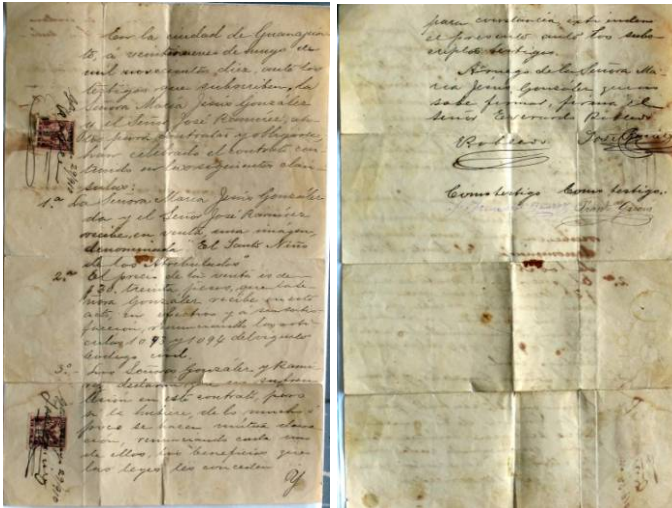 En la ciudad de Guanajua-
to, á veintinueve de Mayo de
mil novecientos diez, ante los
testigos que subscriben, la
Señora María Jesús González
y el Señor José Ramírez,
para contratar y obligarse,
han celebrado el contrato con-
tenido en las siguientes cláu-
sulas:
1ª La Señora María Jesús González
da y el Señor José Ramírez
recibe, en venta una imágen,
denominada "El Santo Niño
de los Atribulados"
2ª El precio de la venta es de
$30. treinta pesos, que la Se-
ñora González recibe en este
acto, en efectivo y á su satis-
facción, renunciando los artí-
culos 1093 y 1094 del
Código civil.
3ª Los Señores González y Rami-
rez declaran que no
lesión en este contrato, pero
si la hubiere, de lo mucho ó
poco se hacen mútua dona-
ción, renunciando cada uno
de ellos, los beneficios que
las leyes les conceden
y
para constancia extienden
el presente ante los subs-
criptos testigos.
A ruego de la Señora Ma-
ría Jesús González que no
sabe firmar, firma el
Señor Robledo
Robledo José
Como testigo Como testigo.